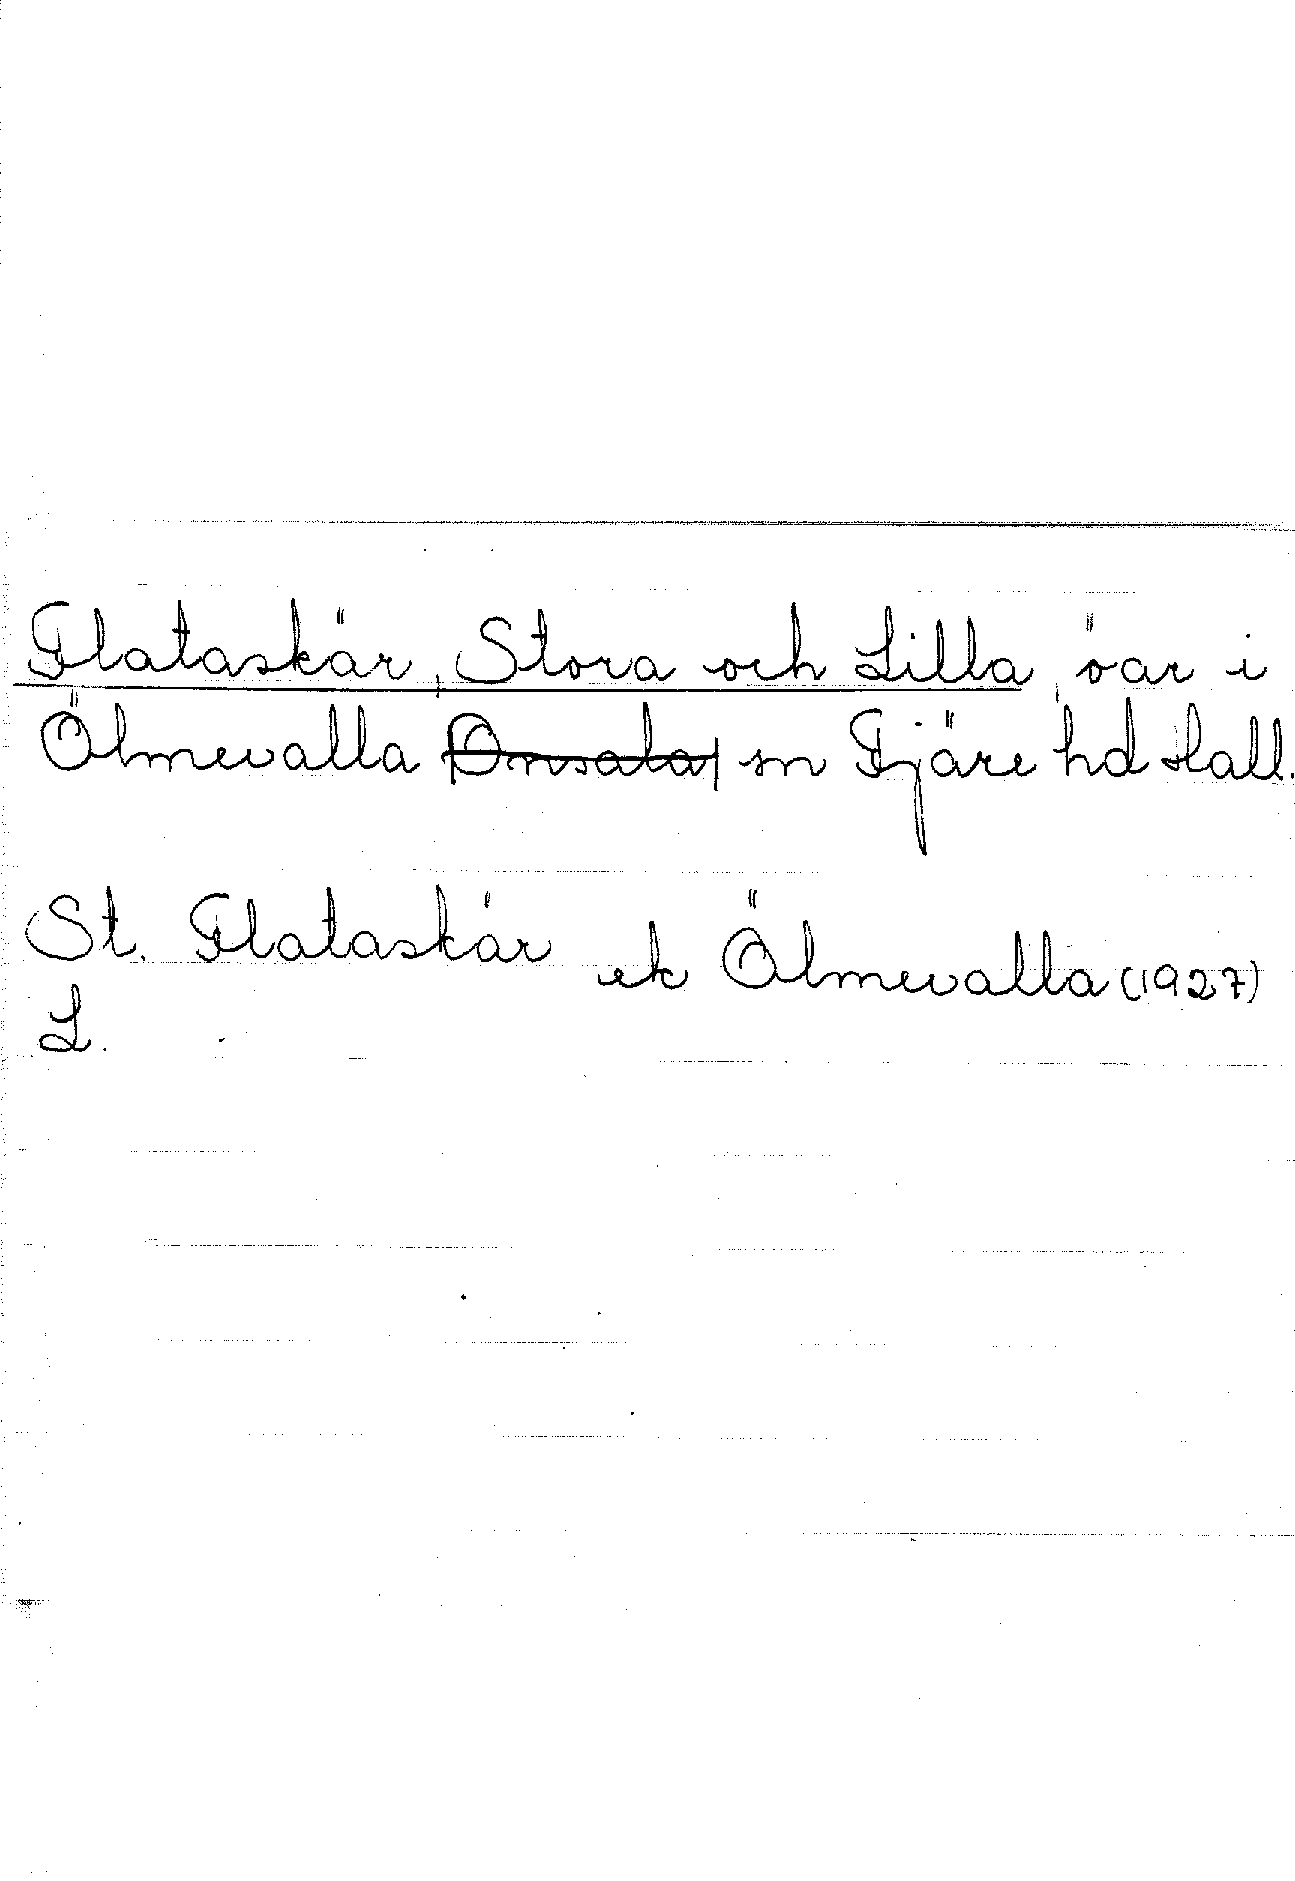 Flataskär, Stora och Lilla, öar i
Ölmevalla (Onsala) sn Fjäre hd Hall.
St. Flataskär ek Ölmevalla (1927)
L.